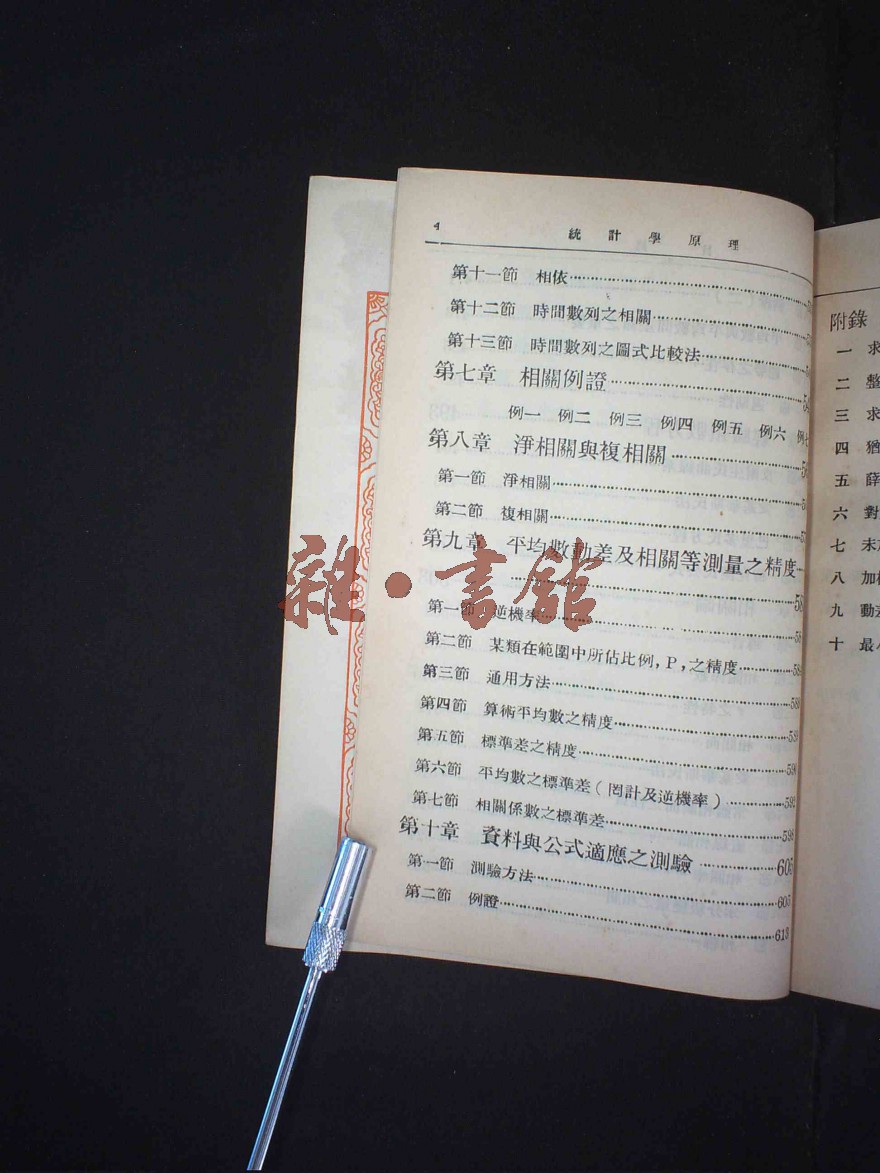 4 統計學原理
第十一節 相依
第十二節 時間數列之相關
第十三節 時間數列之圖式比較法
第七章 相關例證
例一 例二 例三 例四 例五 例六 例七
第八章 淨相關與複相關
第一節 淨相關
第二節 複相關
第九章 平均數動差及相關等測量之精度
第一節 逆機率
第二節 某類在範圍中所佔比例，P，之精度
第三節 通用方法
第四節 算術平均數之精度
第五節 標準差之精度
第六節 平均數之標準差（罔計及逆機率）
第七節 相關係數之標準差
第十章 資料與公式適應之測驗 605
第一節 測驗方法 605
第二節 例證 613
附錄
一 求
二 整
三 求
四 猶
五 薛
六 對
七 未
八 加
九 動
十 最
雜·書館